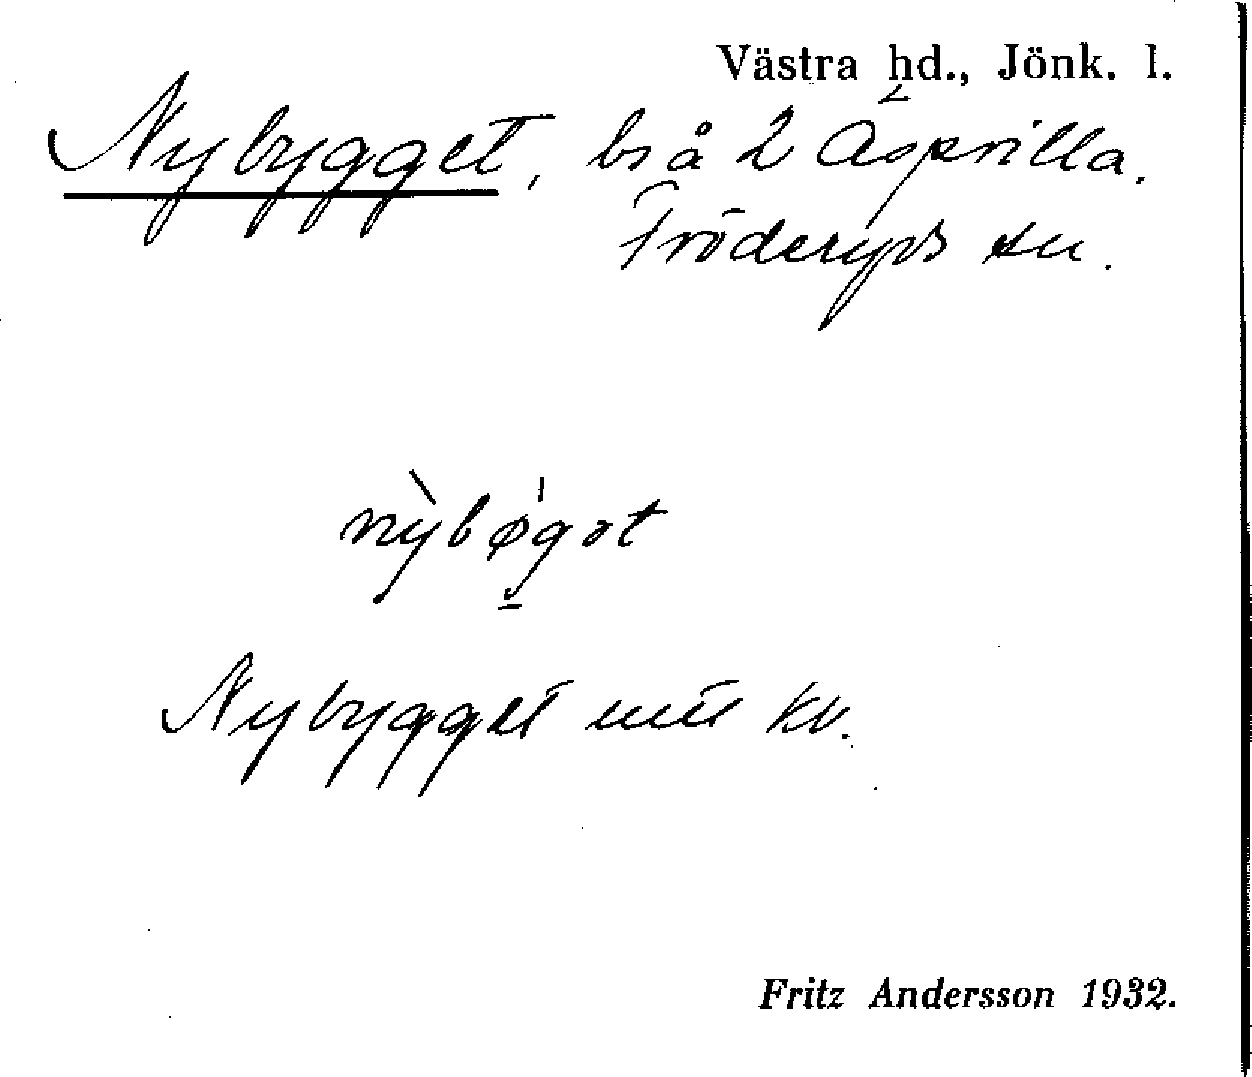 Västra hd., Jönk. l.
Nybygget, bs å 2 Äsprilla.
Fröderyds sn.
nỳbø̀gət
Nybygget mtl kv.
Fritz Andersson 1932.